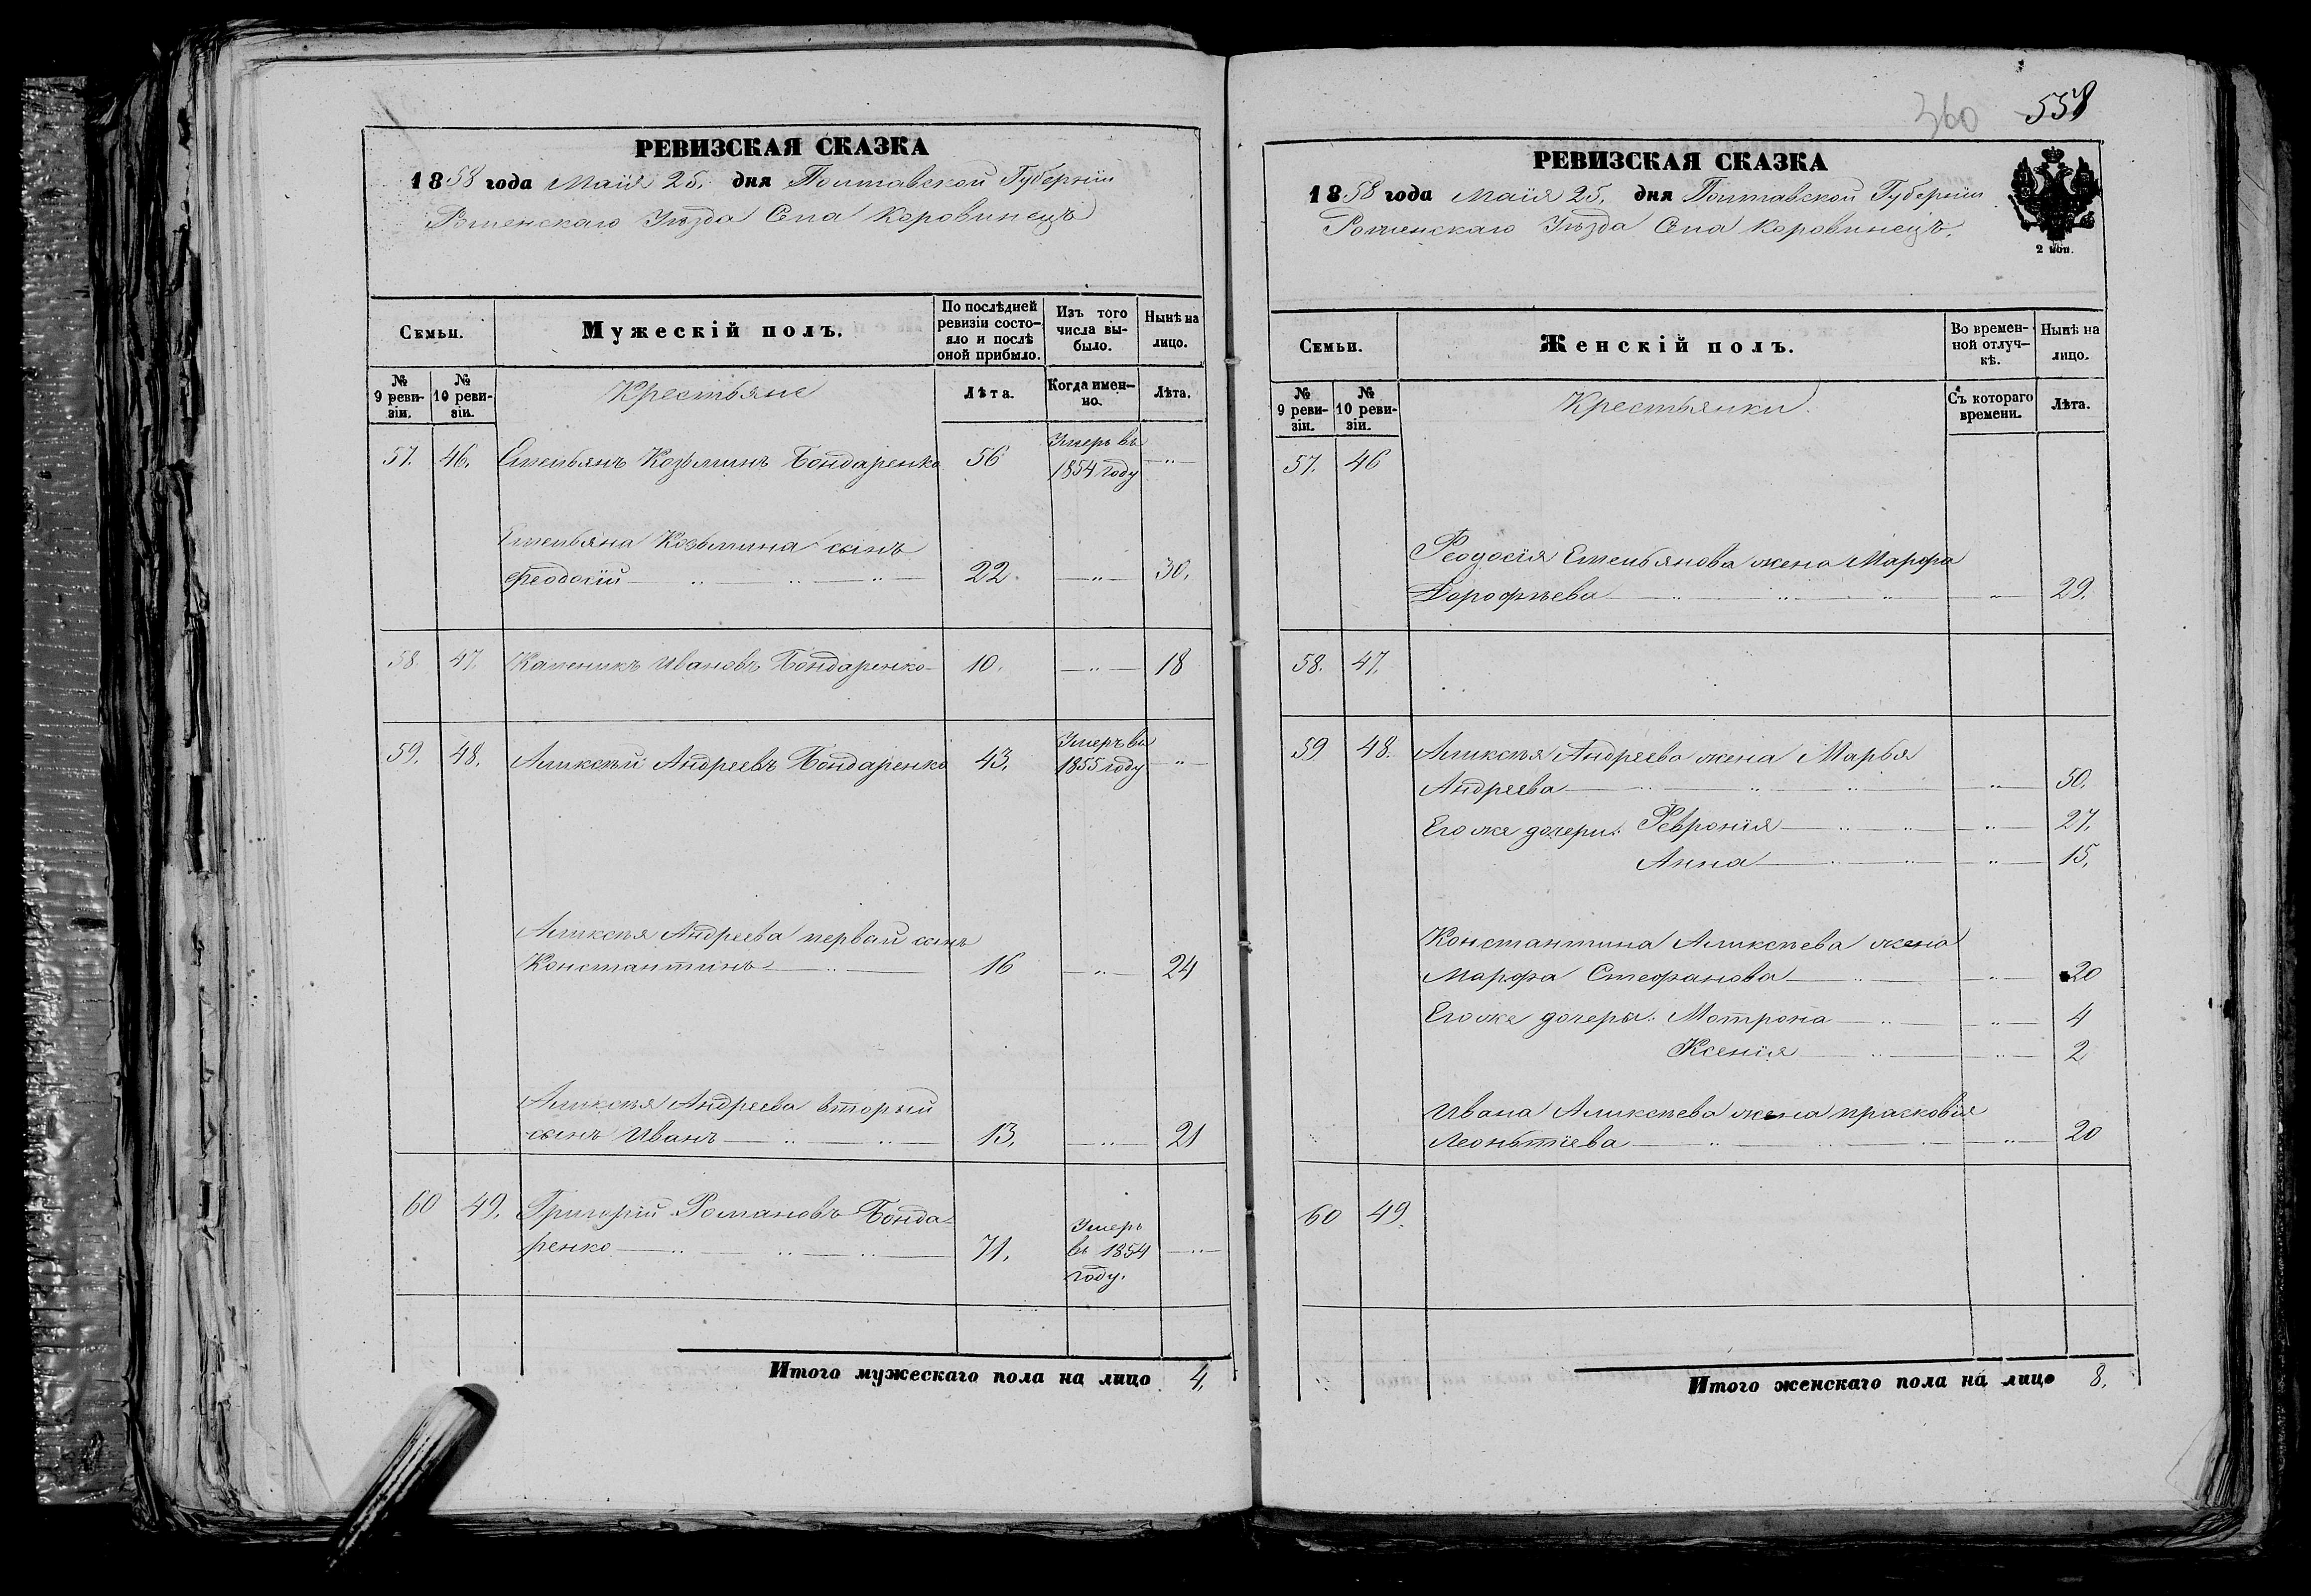 РЕВИЗСКАЯ СКАЗКА
1858 года Маія 25. дня Полтавской Губерніи
Роменскаго Уѣзда Села Коровинецъ
Семьи.
Мужескій полъ.
По послѣдней ревизіи состояло и послѣ оной прибыло.
Изъ того числа выбыло.
Нынѣ на лицо.
№ 9 ревизіи.
№ 10 ревизіи.
Крестьяне
Лѣта.
Когда именно.
Лѣта.
57. 46. Емельянъ Козьминъ Бондаренко 56 Умеръ въ 1854 году — „ —
Емельяна Козьмина сынъ
Феодосій — „ — „ — „ — 22. — „ — 30.
58. 47. Каленикъ Ивановъ Бондаренко 10. — „ — 18
59. 48. Аликсѣй Андреевъ Бондаренко 43. Умеръ въ 1855 году — „ —
Аликсѣя Андреева первый сынъ
Константинъ — „ — 16 — „ — 24
Аликсѣя Андреева вторый
сынъ Иванъ — „ — „ — 13. — „ — 21
60 49. Григорій Романовъ Бонда-
ренко — „ — „ — „ — 71. Умеръ въ 1854 году. — „ —
Итого мужескаго пола на лицо 4.
360 558
РЕВИЗСКАЯ СКАЗКА
1858 года Маія 25. дня Полтавской Губерніи
Роменскаго Уѣзда Села Коровинецъ.
2 коп.
Семьи.
Женскій полъ.
Во временной отлучкѣ.
Нынѣ на лицо.
№ 9 ревизіи.
№ 10 ревизіи.
Крестьянки.
Съ котораго времени.
Лѣта.
57. 46
Феодосія Емельянова жена Марфа
Дорофѣева — „ — „ — „ — „ — 29.
58. 47.
59 48. Аликсѣя Андреева жена Марья
Андреева — „ — „ — „ — „ — 50.
Его же дочери: Февронія — „ — „ — „ — 27.
Анна — „ — „ — „ — 15.
Константина Аликсѣева жена
Марфа Стефанова — „ — „ — 20
Его же дочери: Мотрона — „ — „ — 4
Ксенія — „ — „ — 2
Ивана Аликсѣева жена Прасковія
Леоньтіева — „ — „ — „ — „ — 20
60 49.
Итого женскаго пола на лицо 8.